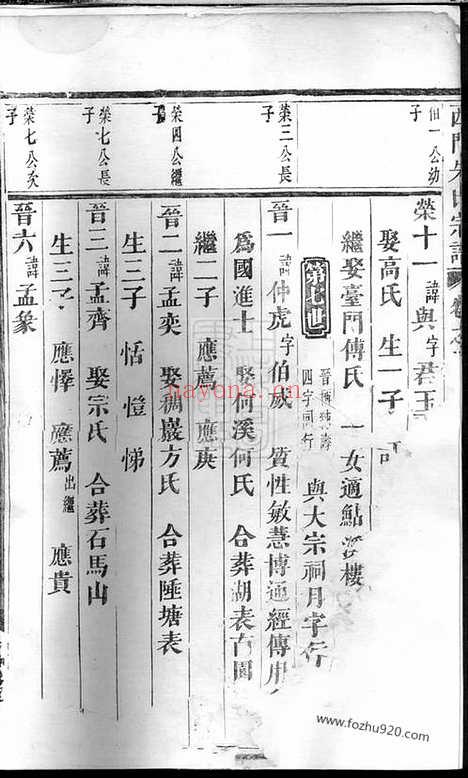 西門朱氏宗譜 卷之
伯一公幼子
榮十一 諱與 字君玉
娶高氏 生一子
繼娶臺門傅氏 一女適鮎 樓
第七世
四字同行
與大宗祠月字行
榮三公長子
晉一 諱仲虎 字伯威 質性敏慧博通經傳
為國進士 娶何溪何氏 合葬湖表古園
繼二子 應薦 應庚
榮四公繼子
晉二 諱孟奕 娶稠巖方氏 合葬陲塘表
生三子 恬 愷 悌
榮七公長子
晉三 諱孟齊 娶宗氏 合葬石馬山
生三子 應懌 應薦出繼 應貴
榮七公次子
晉六 諱孟象
nayona.cn
www.fozhu920.com